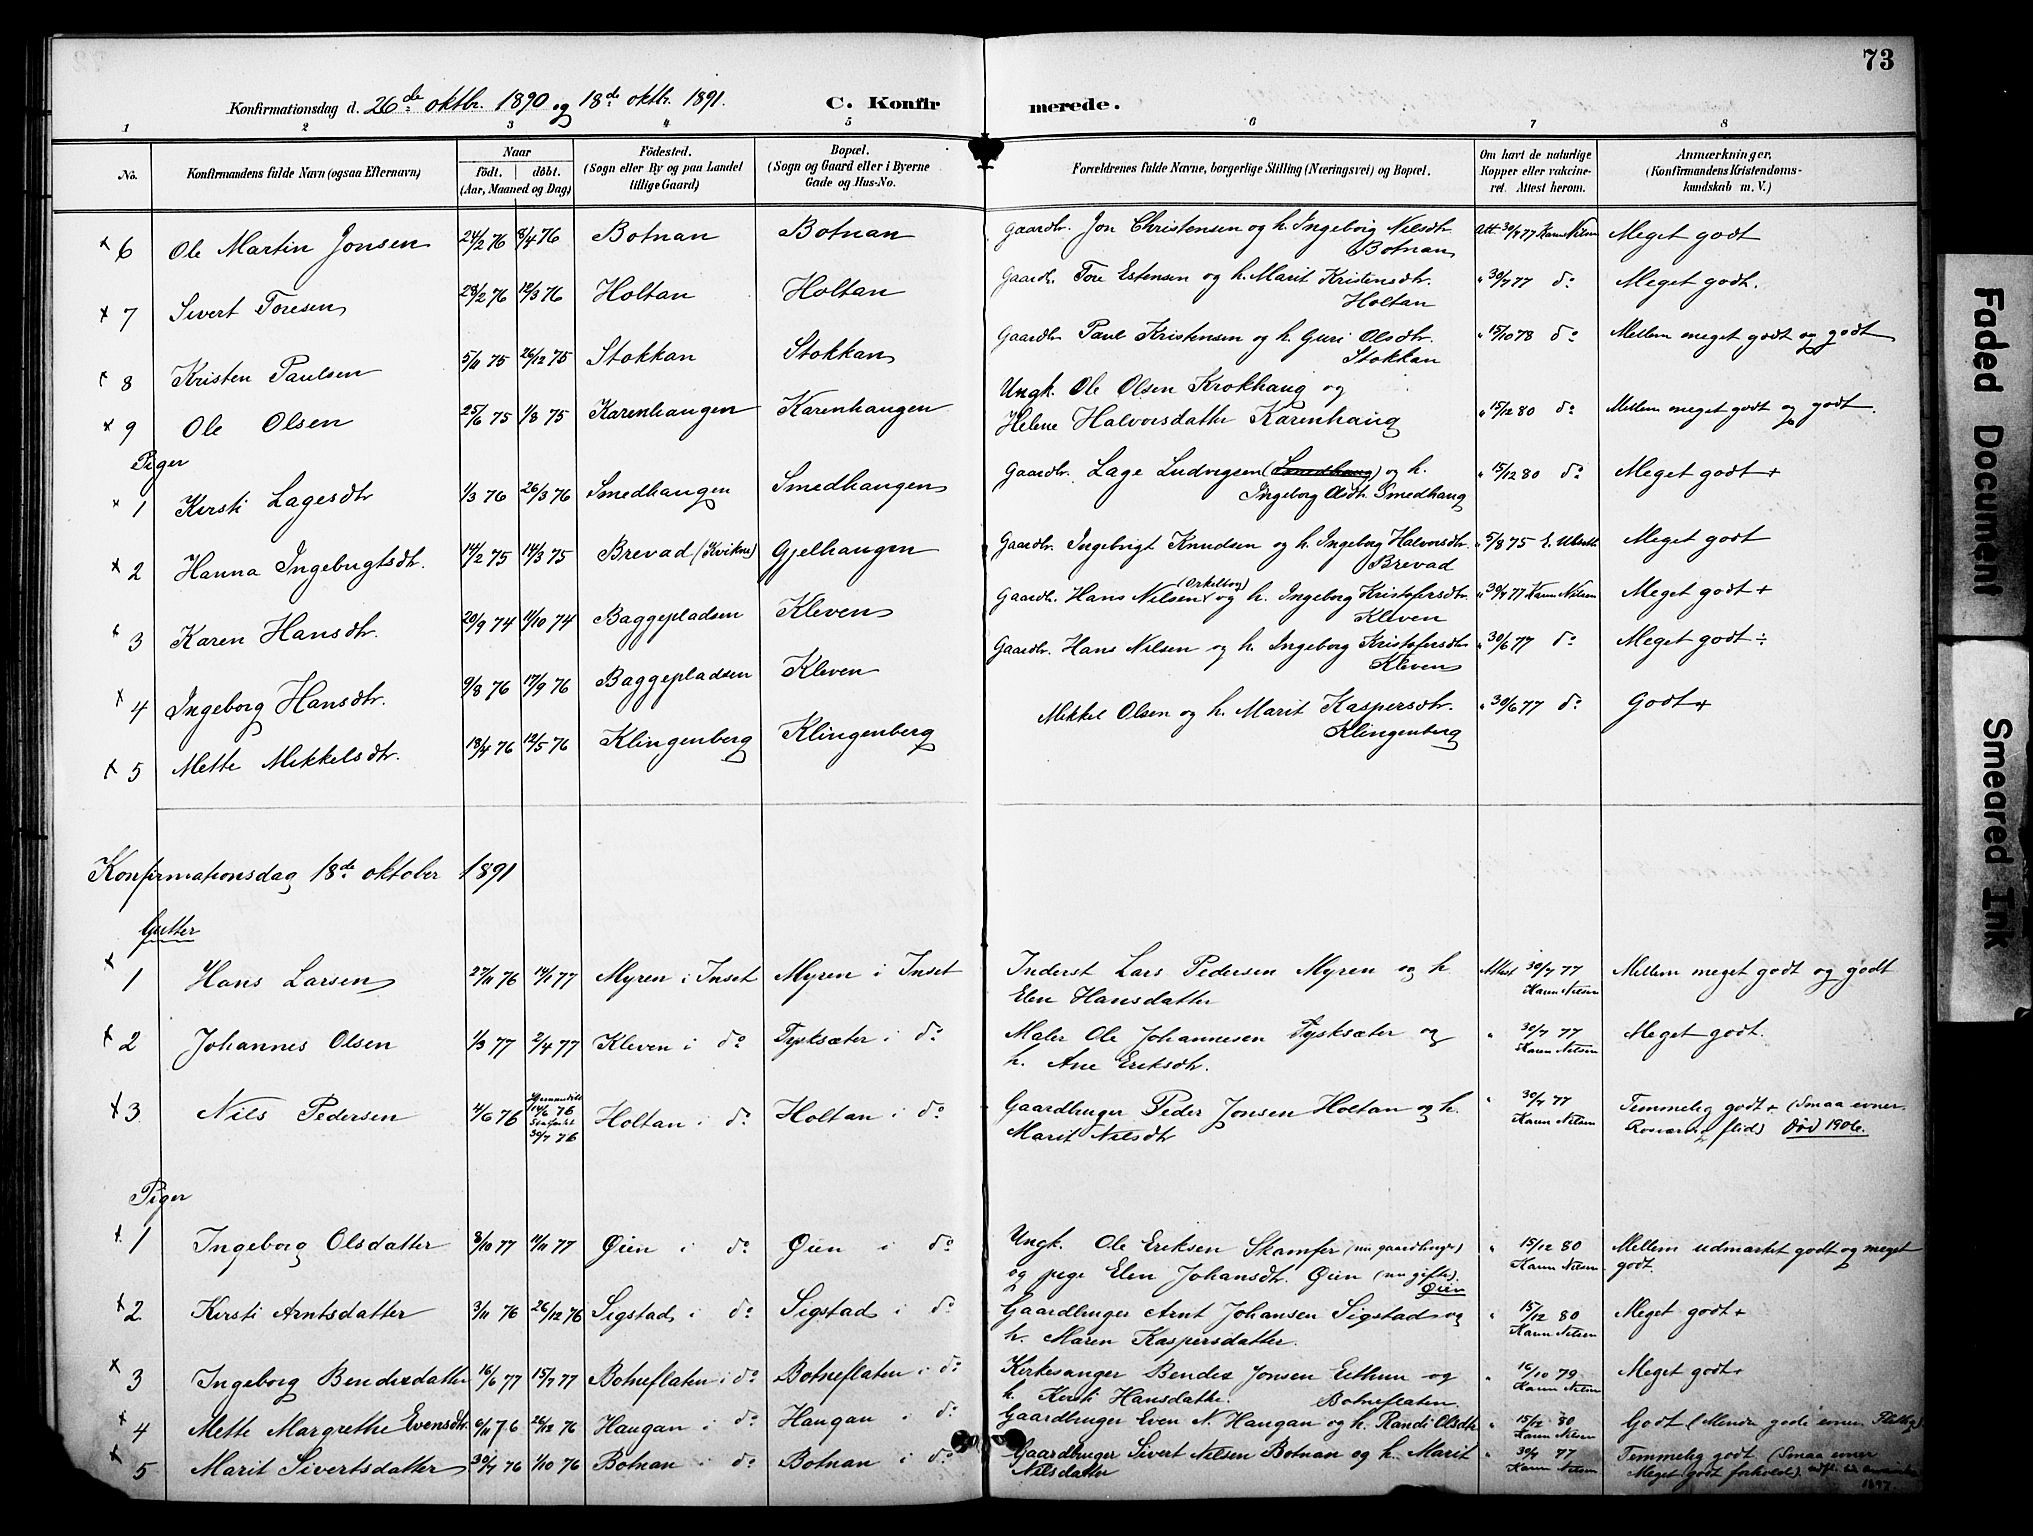 73
Konfirmationsdag d. 26de oktbr. 1890 og 18de oktbr. 1891. C. Konfir merede.
1 2 3 4 5 6 7 8
No. Konfirmandens fulde Navn (ogsaa Efternavn) Naar født. døbt. (Aar, Maaned og Dag) Fødested. (Sogn eller By og paa Landet tillige Gaard) Bopæl. (Sogn og Gaard eller i Byerne Gade og Hus-No. Forældrenes fulde Navne, borgerlige Stilling (Næringsvei) og Bopæl. Om havt de naturlige Kopper eller vakcineret. Attest herom. Anmærkninger. (Konfirmandens Kristendomskundskab m. V.)
6 Ole Martin Jonsen 24/2 76 8/4 76 Botnan Botnan Gaardbr. Jon Christensen og h. Ingeborg Nilsdtr. Botnan Att. 30/7 77 Karen Nilsen Meget godt
7 Sivert Toresen 28/2 76 12/3 76 Holtan Holtan Gaardb. Tore Estensen og h. Marit Kristensdtr. Holtan " 30/7 77 do Meget godt.
8 Kristen Paulsen 5/11 75 26/12 75 Stokkan Stokkan Gaardbr Paul Kristensen og h. Guri Olsdtr. Stokkan " 15/10 78 do Mellem meget godt og godt
9 Ole Olsen 25/6 75 1/8 75 Karenhaugen Karenhaugen Ungk. Ole Olsen Krokhaug og
Helene Halvorsdatter Karenhaug " 15/12 80 do Mellem meget godt og godt.
Piger
1 Kirsti Lagesdtr 1/3 76 26/3 76 Smedhaugen Smedhaugen Gaardbr. Lage Ludvigsen (Smedhaug) og h.
Ingeborg Olsdtr. Smedhaug " 15/12 80 do Meget godt +
2 Hanna Ingebrigtsdtr. 14/2 75 14/3 75 Brevad (Kvikne) Gjelhaugen Gaardbr. Ingebrigt Knudsen og h. Ingeborg Halvorsdtr. Brevad " 5/8 75 Meget godt
3 Karen Hansdtr. 20/9 74 11/10 74 Baggepladsen Kleven Gaardbr. Hans Nilsen (Orkelbog) og h. Ingeborg Kristofersdtr. Kleven " 30/7 77 Karen Nilsen Meget godt +
4 Ingeborg Hansdtr. 9/8 76 17/9 76 Baggepladsen Kleven Gaardbr. Hans Nilsen og h. Ingeborg Kristofersdtr Kleven " 30/6 77 do Meget godt ÷
5 Mette Mikkelsdtr. 18/4 76 12/5 76 Klingenberg Klingenberg Mikkel Olsen og h. Marit Kaspersdtr. Klingenberg " 30/6 77 do Godt +
Konfirmationsdag 18de oktober 1891
Gutter
1 Hans Larsen 27/11 76 14/1 77 Myren i Inset Myren i Inset Inderst Lars Pedersen Myren og h
Elen Hansdatter Attest 30/7 77 Karen Nilsen Mellem meget godt og godt
2 Johannes Olsen 1/3 77 2/4 77 Kleven i do Tysksæter i do Maler Ole Johannesen Tysksæter og
h. Ane Eriksdtr. " 30/7 77 Karen Nilsen Meget godt.
3 Nils Pedersen 4/6 76 Hjemmedøbt 14/6 76 Stadfæstet 30/7 76 Holtan i do Holtan i do Gaardbruger Peder Jonsen Holtan og h.
Marit Nilsdtr " 30/7 77 Karen Nilsen Temmelig godt + (Smaa evner. Rosværdig flid) Død 1906.
Piger
1 Ingeborg Olsdatter 3/10 77 11/11 77 Øien i do Øien i do Ungk. Ole Eriksen Skamfer (nu gaardbruger)
og pige Elen Johansdtr. Øien (nu gifte). Øien " 15/12 80 Karen Nilsen Mellem udmærket godt og meget godt.
2 Kirsti Arntsdatter 3/11 76 26/12 76 Sigstad i do Sigstad i do Gaardbruger Arnt Johansen Sigstad og
h. Maren Kaspersdatter. " 15/12 80 Karen Nilsen Meget godt +
3 Ingeborg Bendixdatter 16/6 77 15/7 77 Botneflaten i do Botneflaten i do Kirkesanger Bendix Jonsen Eithun og
h. Kirsti Hansdatter. Botneflaten. " 16/10 79 Karen Nilsen Meget godt +
4 Mette Margrethe Evensdtr. 6/11 76 26/12 76 Haugan i do Haugan i do Gaardbruger Even N. Haugan og h. Randi Olsdtr " 15/12 80 Karen Nilsen Godt (Mindre gode evner Flittig)
5 Marit Sivertsdatter 30/7 76 1/10 76 Botnan i do Botnan i do Gaardbruger Sivert Nilsen Botnan og h. Marit
Nilsdatter " 30/7 77 Karen Nilsen Temmelig godt (Smaa evner Meget godt forhold) 1897.
Faded Document
Smeared Ink